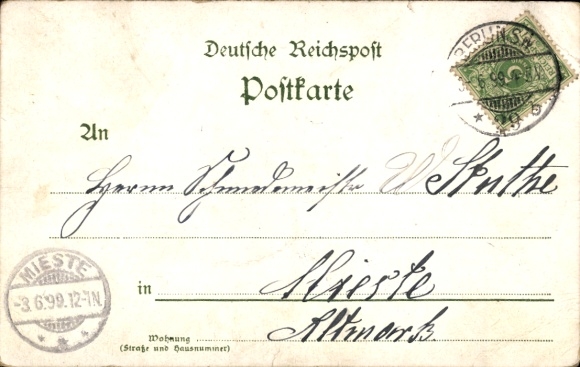 Deutsche Reichspost
Postkarte
BERLIN S.W.
6.99
An
Herrn Schmiedemeister W Stuthe
MIESTE
-3.6.99.12-1N.
in Mieste
Altmark.
Wohnung
(Straße und Hausnummer)